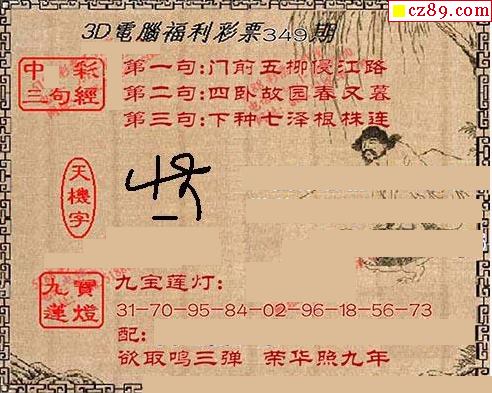 cz89.com
3D電腦福利彩票349期
中彩
三句經
第一句:门前五柳侵江路
第二句:四卧故园春又暮
第三句:下种七泽根株连
天機字
九寶
蓮燈
九宝莲灯:
31-70-95-84-02-96-18-56-73
配:
欲取鸣三弹 荣华照九年